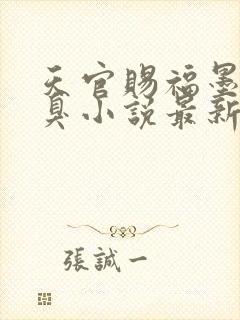 天官賜福墨
臭小說最新
張誠一